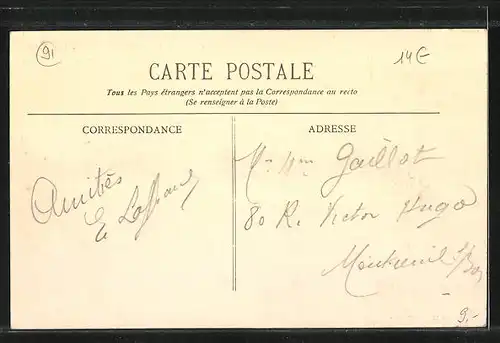 91
14€
CARTE POSTALE
Tous les Pays étrangers n'acceptent pas la Correspondance au recto
(Se renseigner à la Poste)
CORRESPONDANCE
ADRESSE
Amitiés
Gaillot
80 R. Victor Hugo
Montreuil s/Bois
9.-